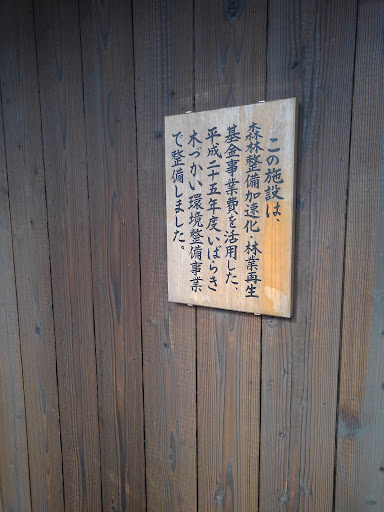 この施設は、
森林整備加速化・林業再生
基金事業費を活用した、
平成二十五年度いばらき
木づかい環境整備事業
で整備しました。